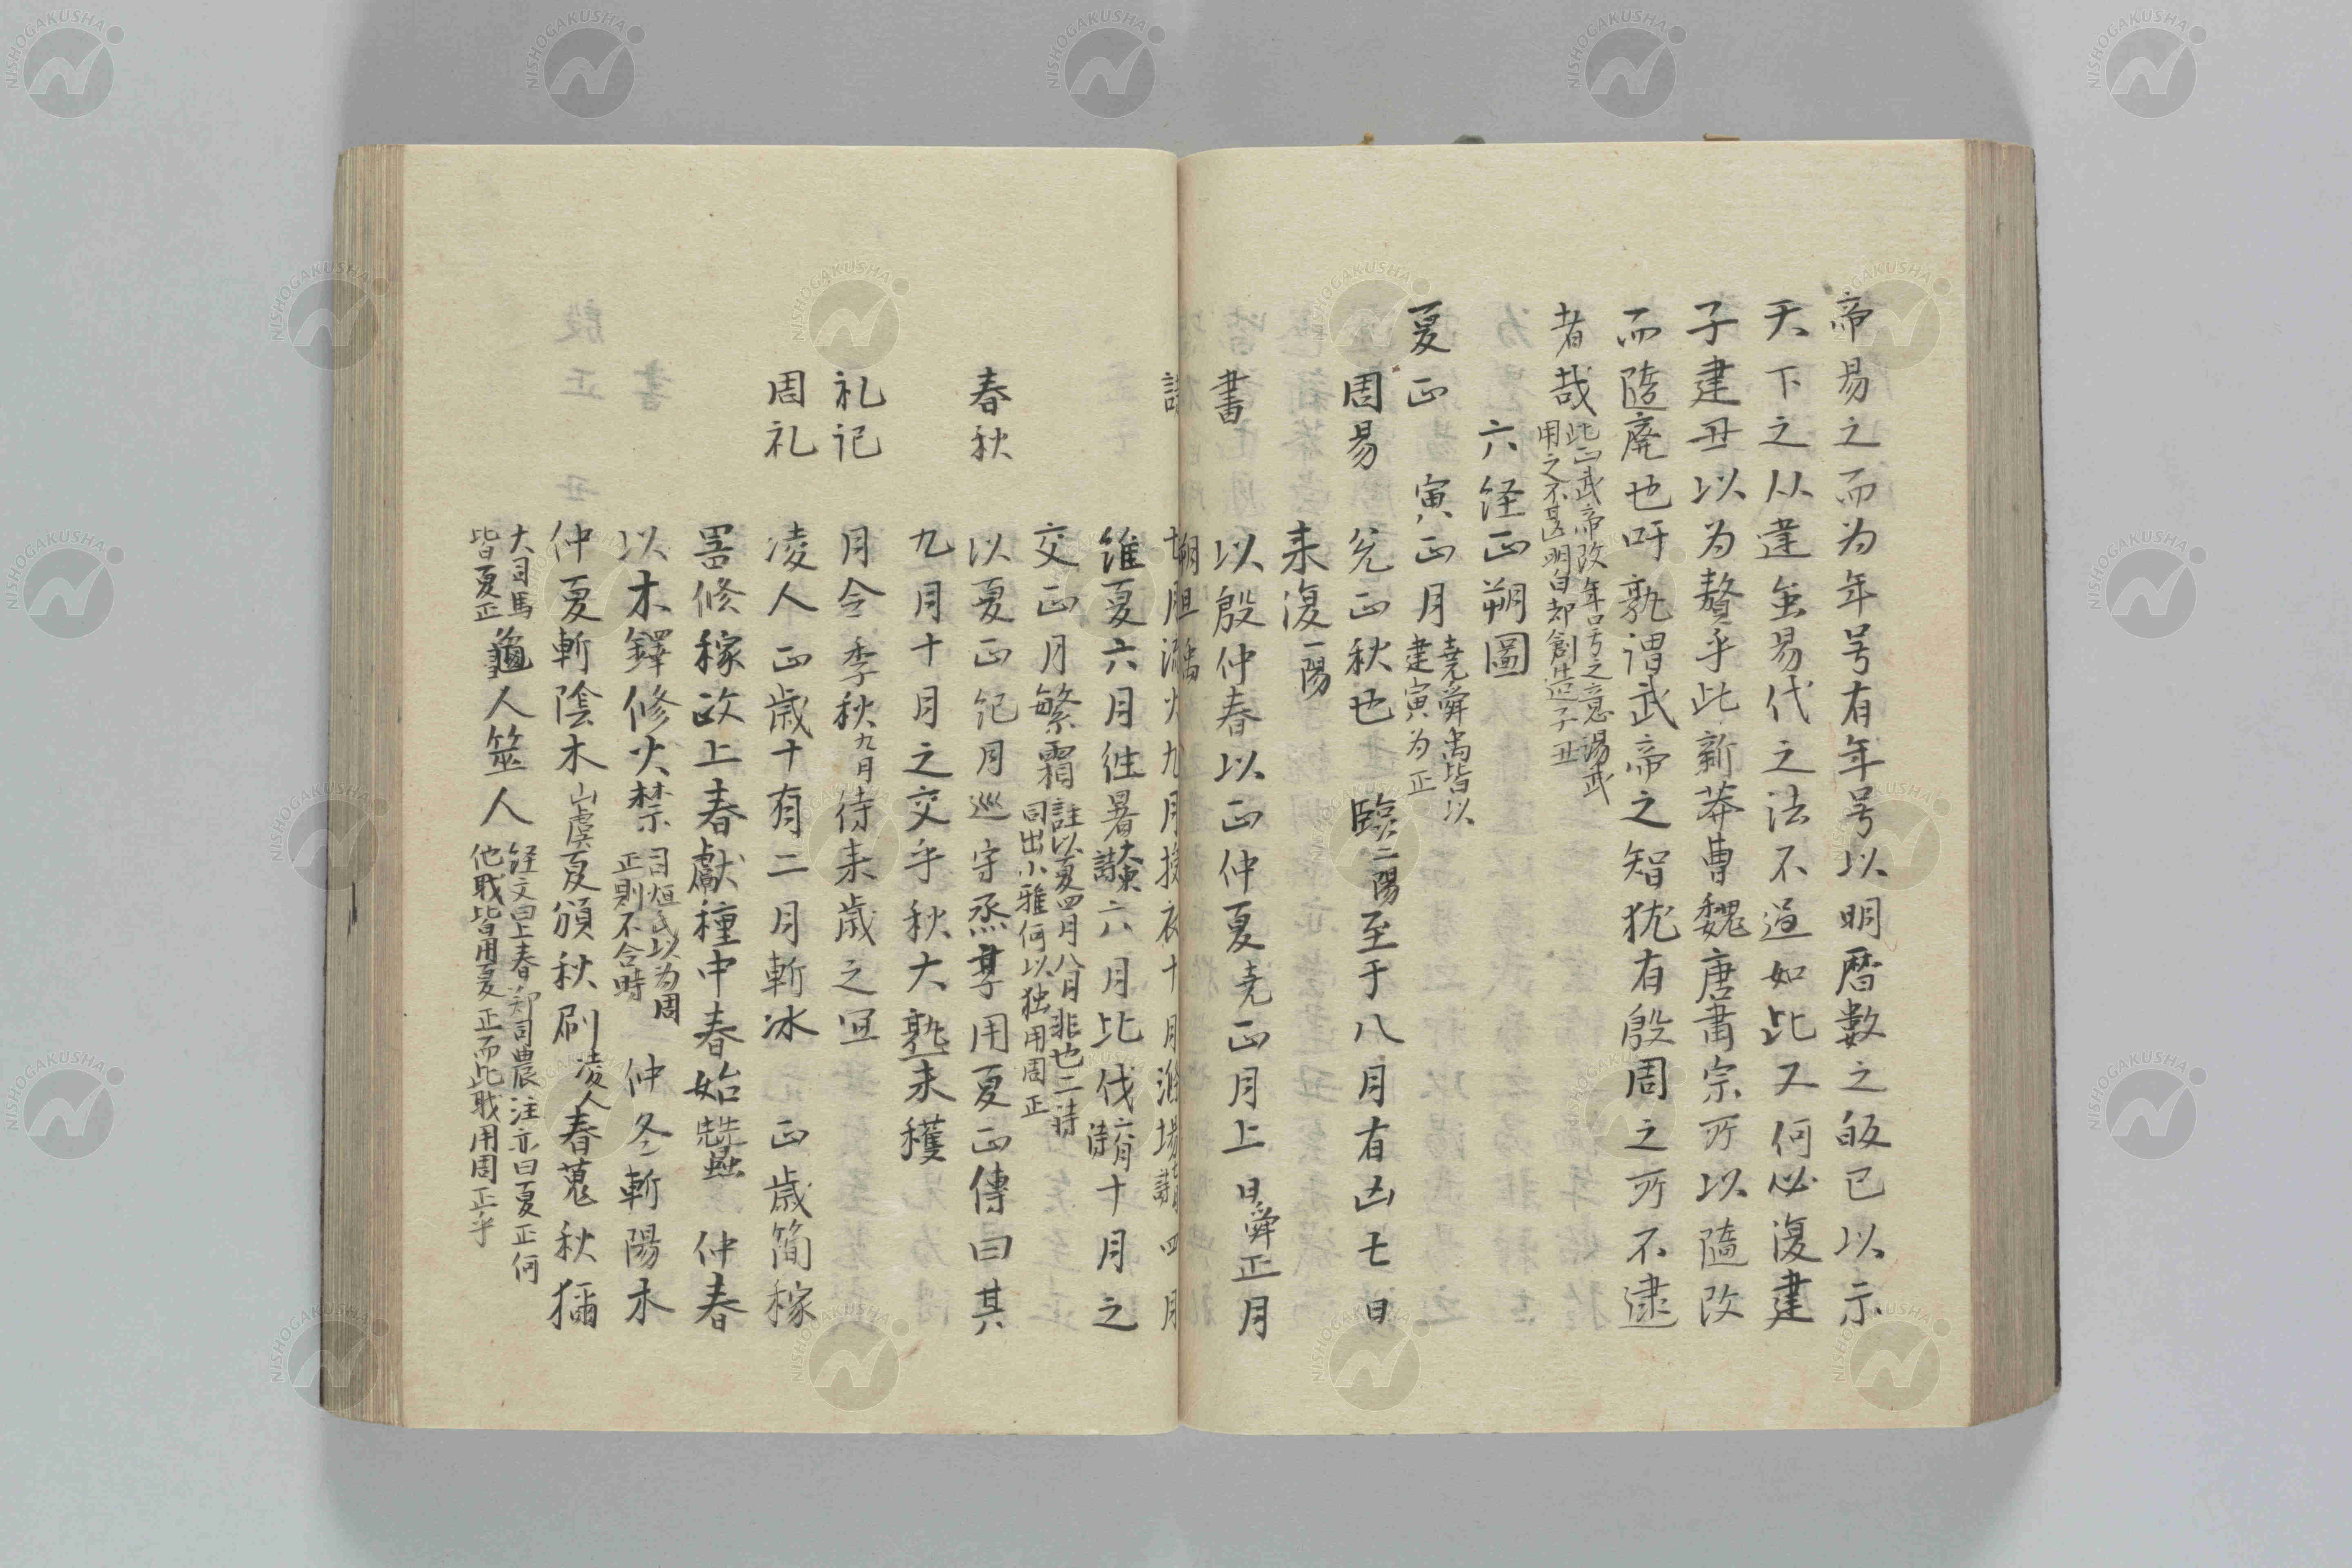 帝易之而为年号有年号以明暦數之皈已以示
天下之从違虽易代之法不過如此又何必復建
子建丑以为贅乎此新莽曹魏唐肅宗所以随改
而随廃也吁孰谓武帝之智犹有殷周之所不逮
者哉此正武帝改年号之意湯武
用之不甚明白却創造子丑
六经正朔圖
夏正 寅正月堯舜禹皆以
建寅为正
周易 兊正秋也 臨二陽至于八月有凶七日
来復一陽
書 以殷仲春以正仲夏堯正月上日舜正月
朔旦
詩 七月流火九月授衣十月滌場 四月
維夏六月徂暑 六月北伐六月詩十月之
交正月繁霜註以夏四月八月非也二詩
同出小雅何以独用周正
春秋 以夏正纪月巡守烝享用夏正傳曰其
九月十月之交乎秋大熟未穫
礼记 月令季秋九月待来歳之宜
周礼 凌人正歳十有二月斬冰 正歳简稼
器修稼政上春獻種中春始蠶 仲春
以木鐸修火禁司烜氏以为周
正則不合時 仲冬斬陽木
仲夏斬陰木山虞夏頒秋刷凌人春蒐秋獮
大司馬
皆夏正龜人筮人经文曰上春郑司農注亦曰夏正何
他戝皆用夏正而此戝用周正乎